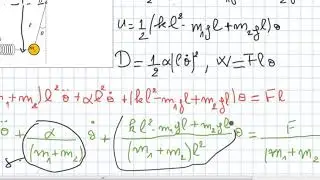 u = 1/2 (kl² - m₁gl + m₂gl) θ
D = 1/2 α(lθ̇)², W = Flθ
+ m₂) l² θ̈ + αl² θ̇ + (kl² - m₁gl + m₂gl) θ = Fl
+ α/(m₁+m₂) θ̇ + (kl² - m₁gl + m₂gl)/((m₁+m₂)l²) θ = F/(m₁+m₂